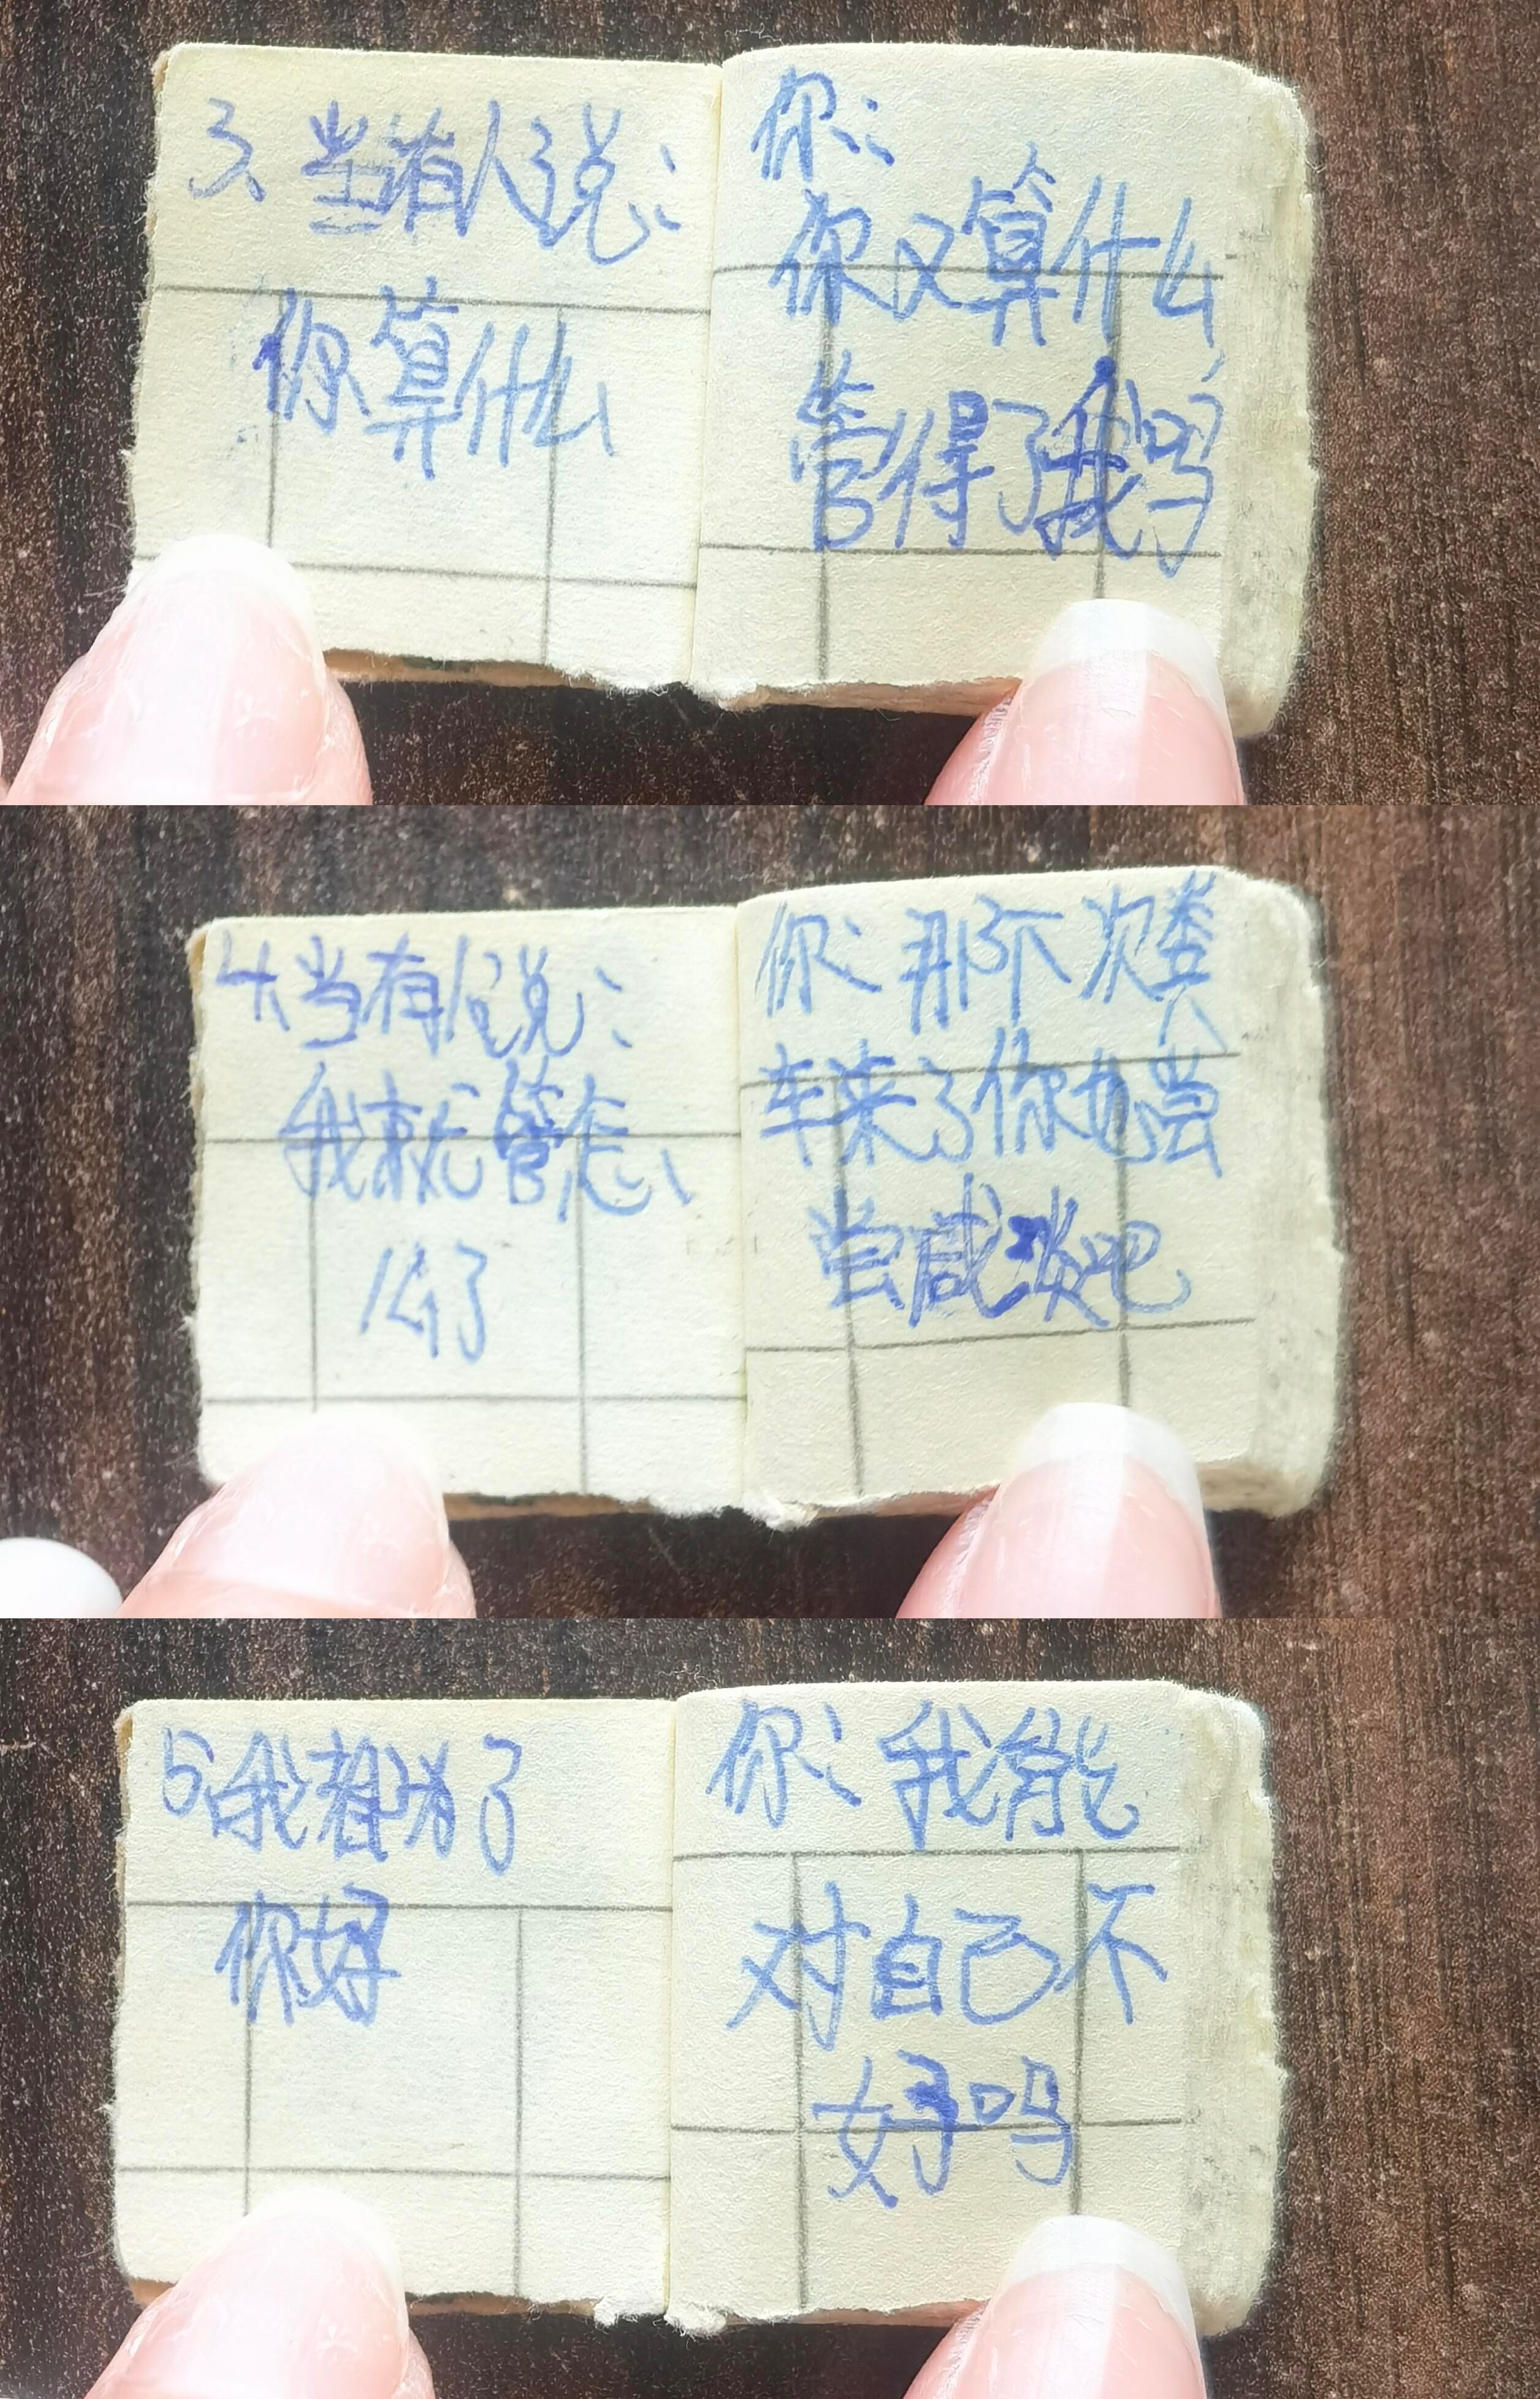 3、当有人说：
你算什么
你：
你又算什么，
管得了我吗
4、当有人说：
我就管怎、
么了
你：那下次粪
车来了你也尝
尝咸淡吧
5、我都为了
你好
你：我能
对自己不
好吗